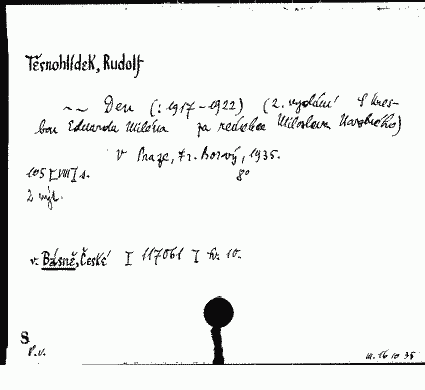 Těsnohlídek, Rudolf
~~ Den (: 1917–1922) (2. vydání S kres-
bou Eduarda Miléna za redakce Miloslava Novotného)
V Praze, Fr. Borový, 1935.
105 [VIII] s. 8°
2 výt.
v. Básně, České I 117061 I kr. 10.
S
P.v.
16 10 35